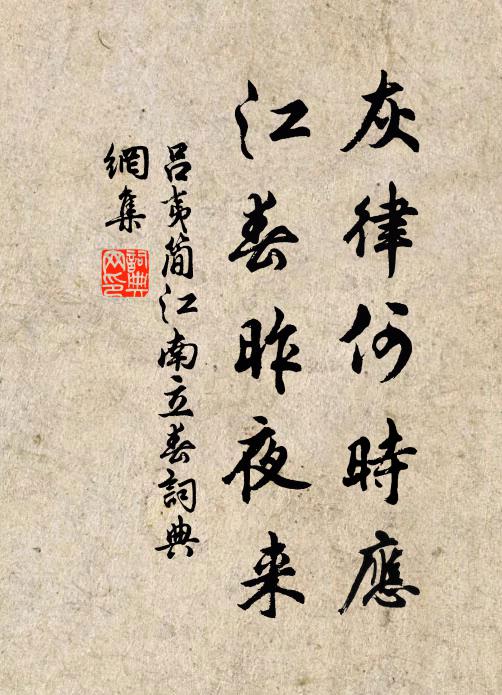 灰律何時應
江春昨夜来
吕夷简江南立春詞典
網集
詞典
网印